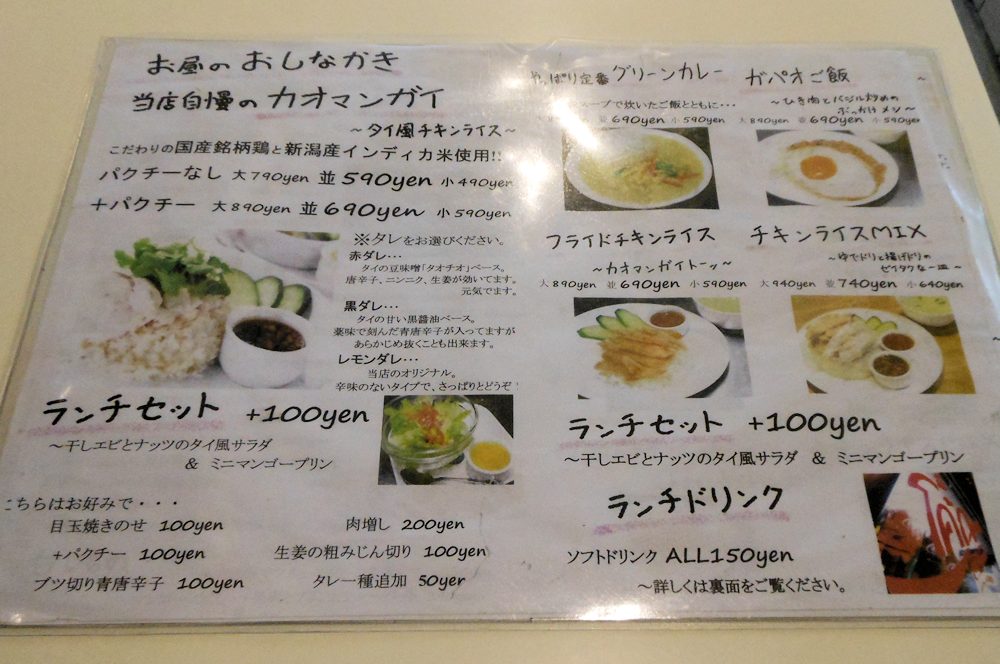 お昼の おしながき
当店自慢の カオマンガイ
～タイ風チキンライス～
こだわりの国産銘柄鶏と新潟産インディカ米使用!!
パクチーなし 大790yen 並590yen 小490yen
+パクチー 大890yen 並690yen 小590yen
※タレをお選びください。
赤ダレ…
タイの豆味噌「タオチオ」ベース。
唐辛子、ニンニク、生姜が効いてます。
元気でます。
黒ダレ…
タイの甘い黒醤油ベース。
薬味で刻んだ青唐辛子が入ってますが
あらかじめ抜くことも出来ます。
レモンダレ…
当店のオリジナル。
辛味のないタイプで、さっぱりとどうぞ!
ランチセット +100yen
～干しエビとナッツのタイ風サラダ
& ミニマンゴープリン
こちらはお好みで・・・
目玉焼きのせ 100yen
肉増し 200yen
+パクチー 100yen
生姜の粗みじん切り 100yen
ブツ切り青唐辛子 100yen
タレ一種追加 50yen
やっぱり定番 グリーンカレー
スープで炊いたご飯とともに…
並690yen 小590yen
ガパオご飯
～ひき肉とバジル炒めの
ぶっかけメシ～
大890yen 並690yen 小590yen
フライドチキンライス
～カオマンガイトーッ～
大890yen 並690yen 小590yen
チキンライスMIX
～ゆでドリと揚げドリの
ゼイタクな一皿～
大940yen 並740yen 小640yen
ランチセット +100yen
～干しエビとナッツのタイ風サラダ & ミニマンゴープリン
ランチドリンク
ソフトドリンク ALL150yen
～詳しくは裏面をご覧ください。